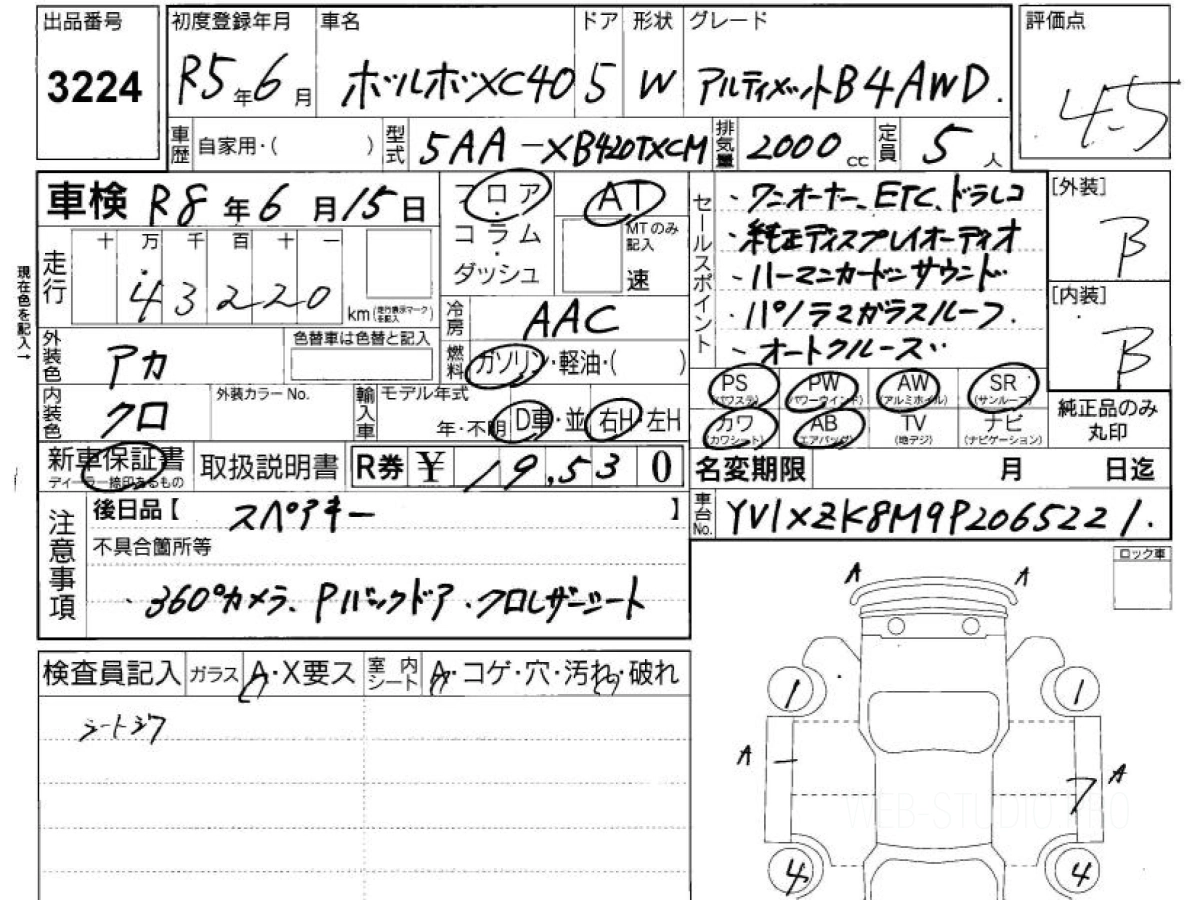 出品番号 初度登録年月 車名 ドア 形状 グレード 評価点
3224 R5年6月 ボルボXC40 5 W アルティメットB4AWD. 4.5
車歴 自家用・( ) 型式 5AA-XB420TXCM 排気量 2000cc 定員 5人
車検 R8年6月15日 フロア・コラム・ダッシュ AT MTのみ記入 速
セールスポイント
・ワンオーナー、ETC、ドラレコ
・純正ディスプレイオーディオ
・ハーマンカードンサウンド
・パノラマガラスルーフ.
・オートクルーズ
[外装] B
[内装] B
現在色を記入→
走行 十万千百十一
43220 km (走行表示マークを記入)
冷房 AAC
燃料 ガソリン・軽油・( )
外装色 アカ 色替車は色替と記入
内装色 クロ 外装カラーNo. 輸入車 モデル年式 年・不明 D車・並 右H・左H
PS (パワステ) PW (パワーウインド) AW (アルミホイル) SR (サンルーフ)
カワ (カワシート) AB (エアバッグ) TV (地デジ) ナビ (ナビゲーション)
純正品のみ丸印
新車保証書 ディーラー捺印あるもの 取扱説明書 R券 ¥ 19,530 名変期限 月 日迄
注意事項 後日品【 スペアキー 】 車台No. YV1XZK8M9P2065221.
不具合箇所等
・360°カメラ、Pバックドア・クロレザーシート
ロック車
検査員記入 ガラス A・X要ス 室内シート A・コゲ・穴・汚れ・破れ
シートシワ
A A
1 1
A A
7
4 4
WEB-STUDIO.PRO